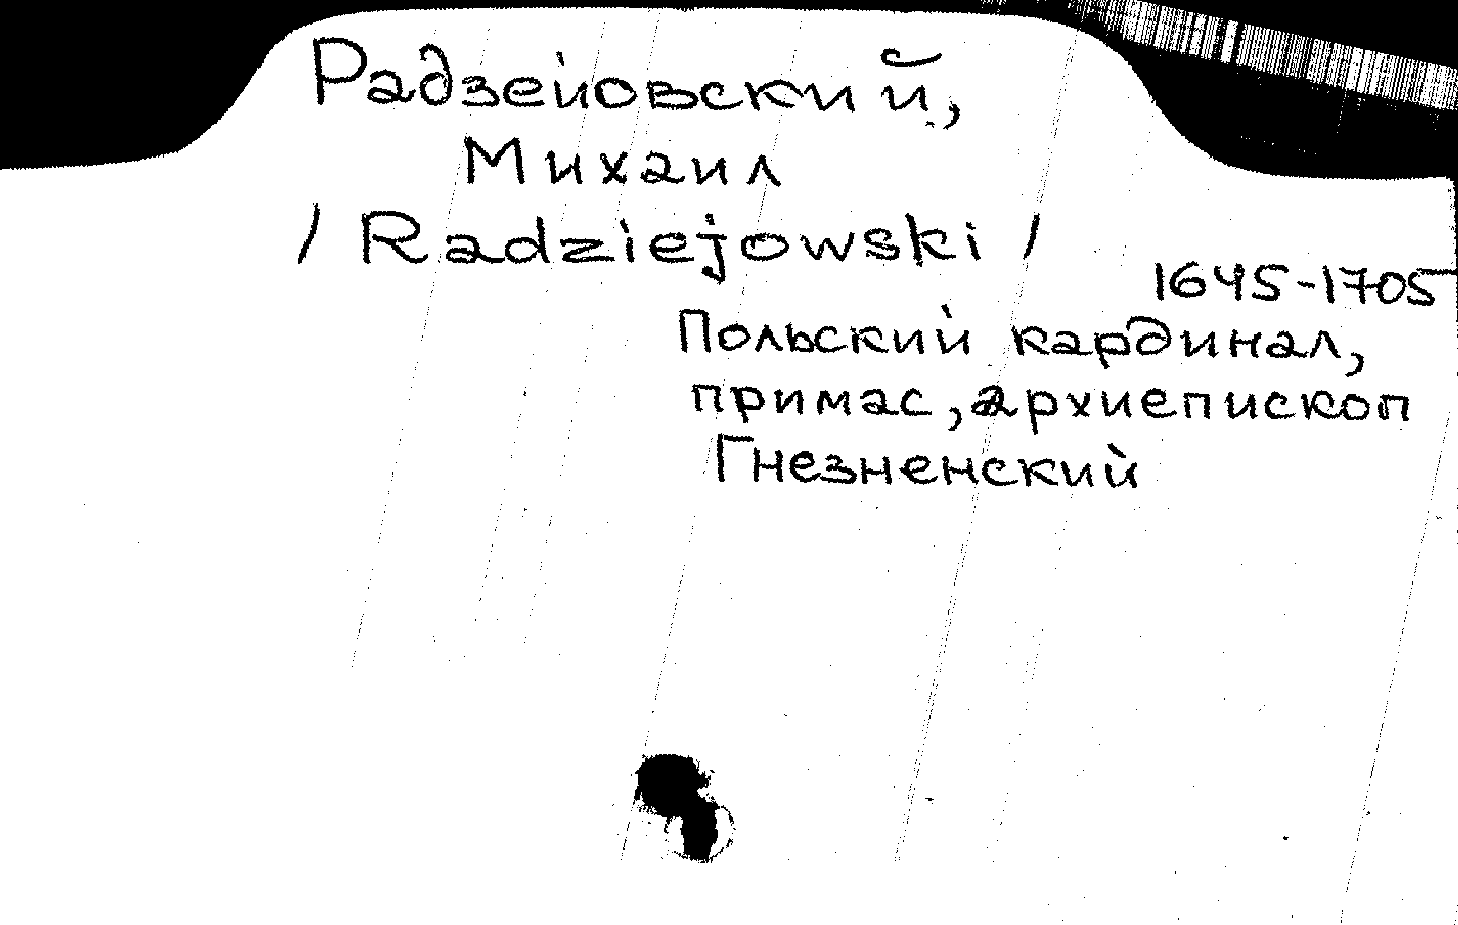 Радзейовский,
Михаил
/ Radziejowski /
1645-1705
Польский кардинал,
примас, архиепископ
Гнезненский